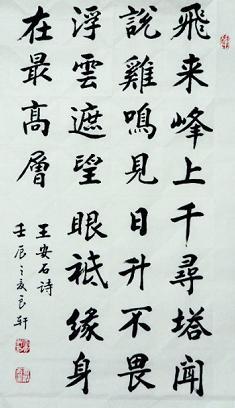 飛来峰上千尋塔聞
說雞鳴見日升不畏
浮雲遮望眼祗緣身
在最高層
王安石诗
壬辰之亥良軒